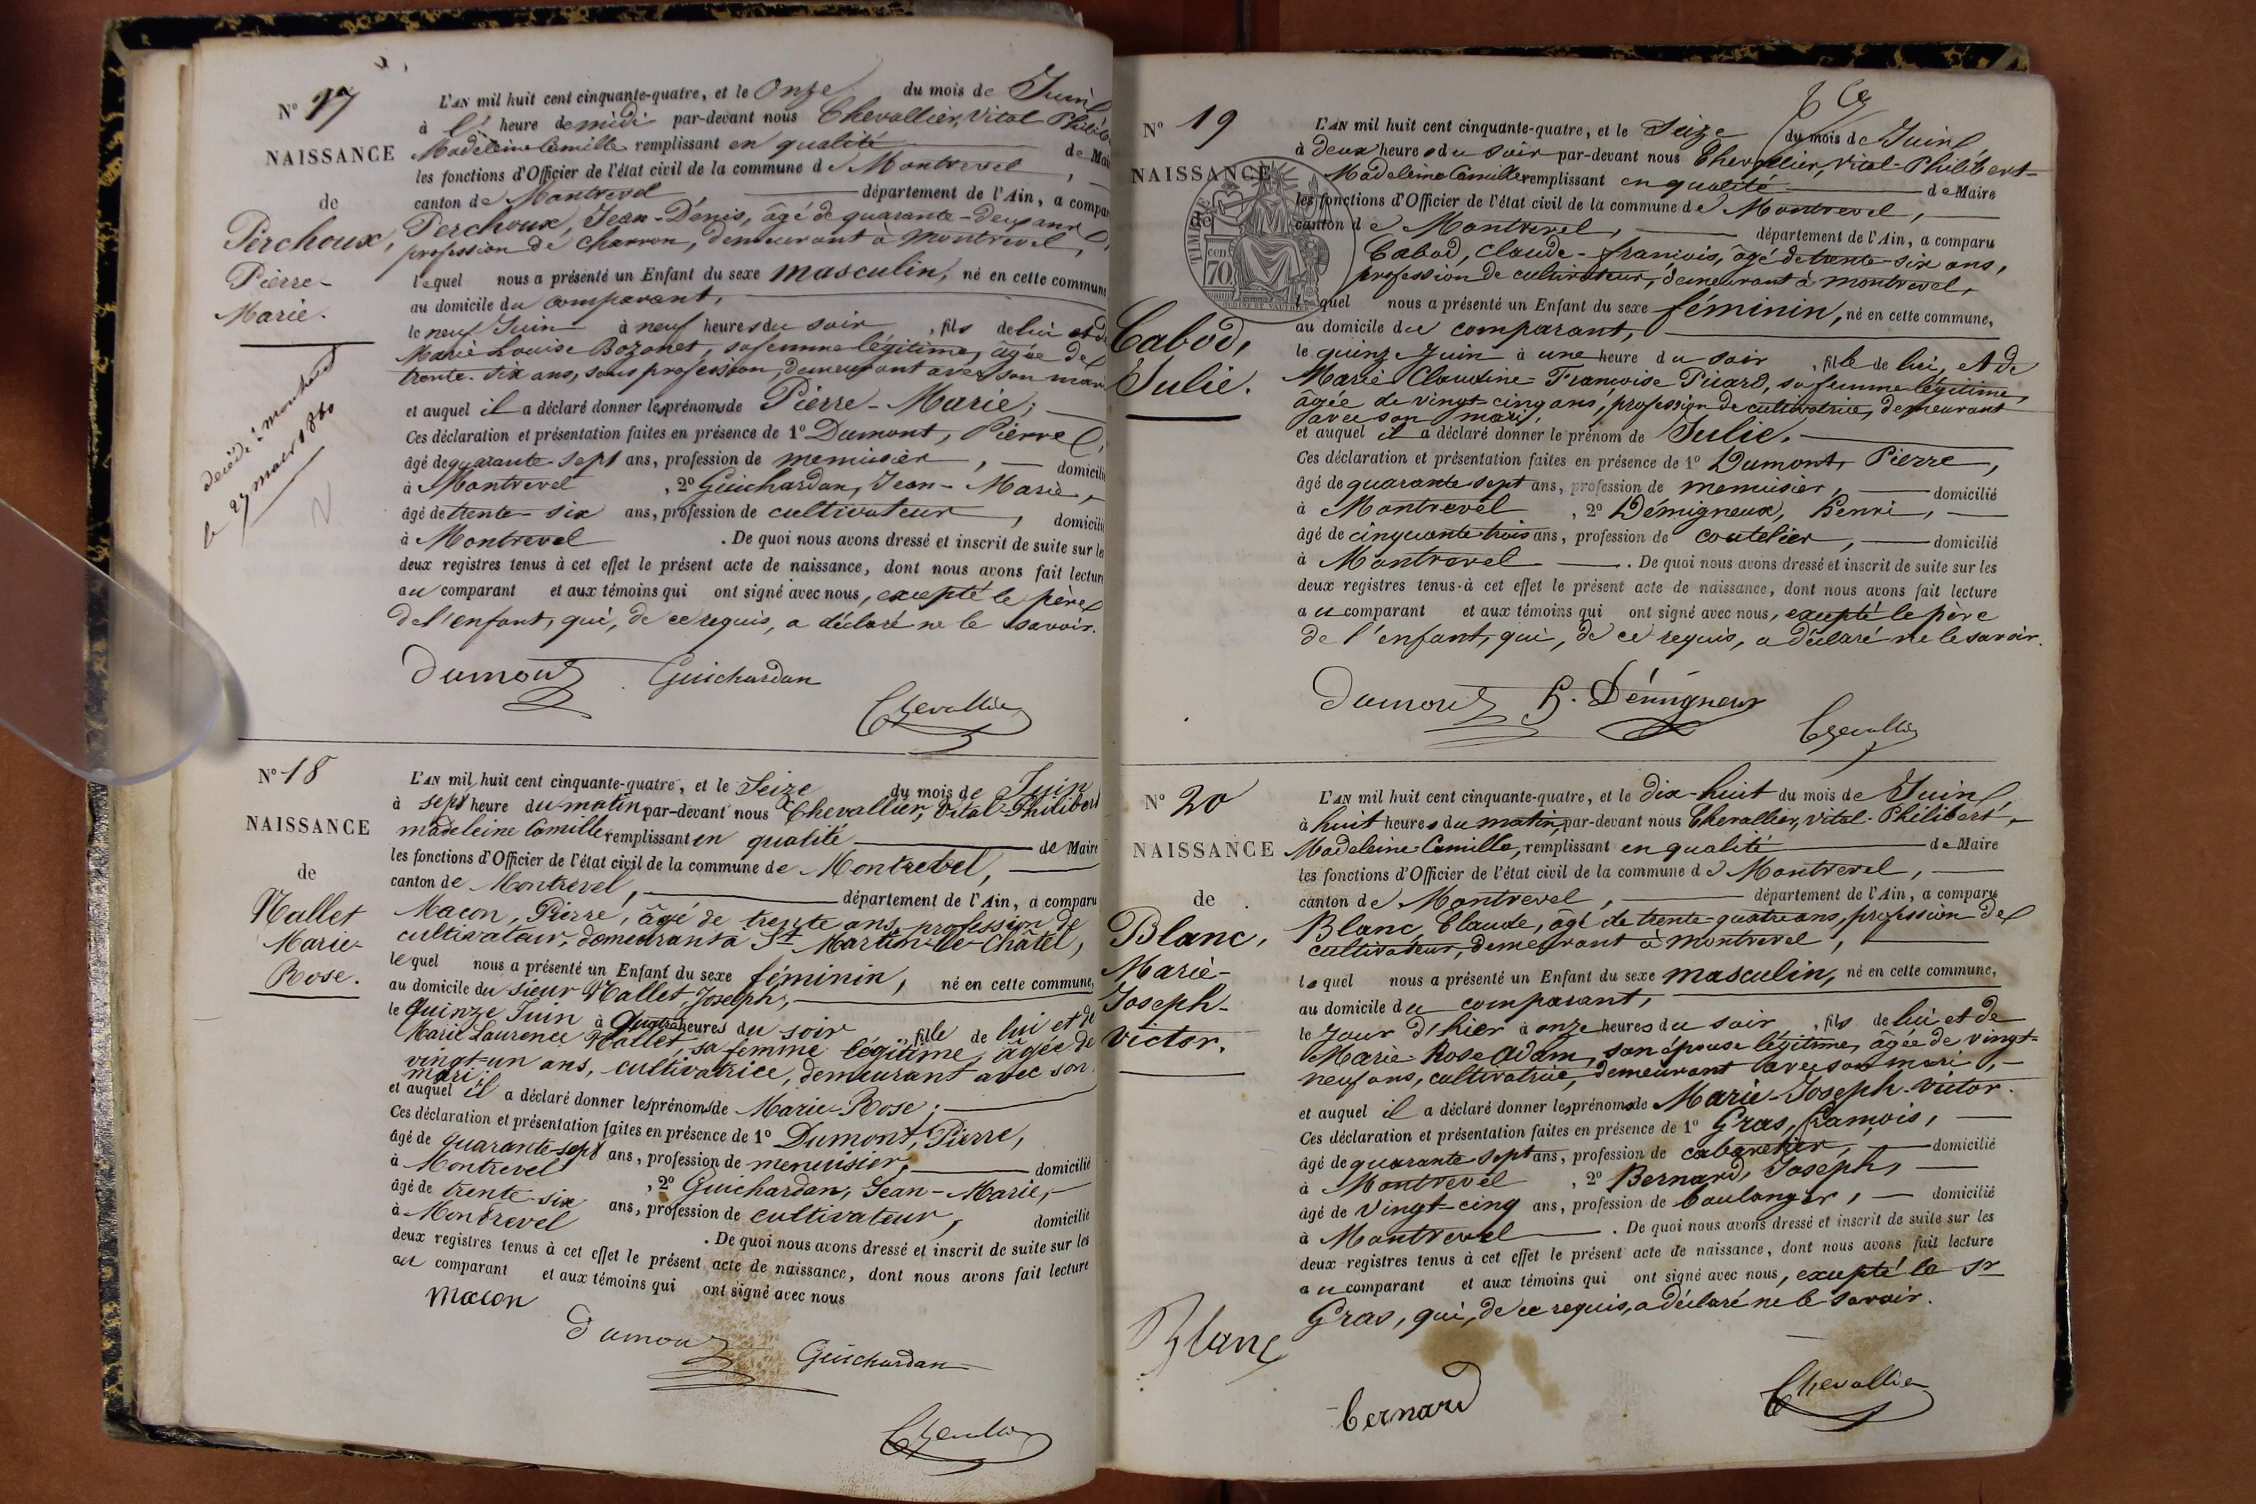 N° 17
NAISSANCE
de
Perchoux,
Pierre-
Marie.
décédé à
le 27 mars 1880
L'AN mil huit cent cinquante-quatre, et le Onze du mois de Juin
à l' heure de midi par-devant nous Chevallier, Vital Philib
Madeleine Camille remplissant en qualité de Mai
les fonctions d'Officier de l'état civil de la commune de Montrevel,
canton de Montrevel département de l'Ain, a compar
Perchoux, Jean-Dénis, âgé de quarante-deux ans,
profession de charron, demeurant à Montrevel,
lequel nous a présenté un Enfant du sexe masculin, né en cette commune
au domicile du comparant,
le neuf Juin à neuf heures du soir, fils de lui et de
Marie Louise Bozonet, sa femme légitime, âgée de
trente-six ans, sans profession, demeurant avec son mari
et auquel il a déclaré donner les prénoms de Pierre-Marie;
Ces déclaration et présentation faites en présence de 1° Dumont, Pierre,
âgé de quarante-sept ans, profession de menuisier, domicilié
à Montrevel, 2° Guichardan, Jean-Marie,
âgé de trente-six ans, profession de cultivateur, domicilié
à Montrevel. De quoi nous avons dressé et inscrit de suite sur les
deux registres tenus à cet effet le présent acte de naissance, dont nous avons fait lecture
au comparant et aux témoins qui ont signé avec nous, excepté le père
de l'enfant, qui, de ce requis, a déclaré ne le savoir.
Dumont Guichardan
Chevallier
N° 18
NAISSANCE
de
Mallet
Marie-
Rose.
L'AN mil huit cent cinquante-quatre, et le Seize du mois de Juin
à sept heure du matin par-devant nous Chevallier, Vital-Philibert
madeleine Camille remplissant en qualité de Maire
les fonctions d'Officier de l'état civil de la commune de Montrevel,
canton de Montrevel, département de l'Ain, a comparu
Macon, Pierre, âgé de trente ans, profession de
cultivateur, demeurant à St Martin-le-Châtel,
lequel nous a présenté un Enfant du sexe féminin, né en cette commune,
au domicile du sieur Mallet, Joseph,
le Quinze Juin à Quatre heures du soir, fille de lui et de
Marie Laurence Mallet, sa femme légitime, âgée de
vingt-un ans, cultivatrice, demeurant avec son
mari;
et auquel il a déclaré donner les prénoms de Marie-Rose;
Ces déclaration et présentation faites en présence de 1° Dumont, Pierre,
âgé de quarante-sept ans, profession de menuisier, domicilié
à Montrevel, 2° Guichardan, Jean-Marie,
âgé de trente-six ans, profession de cultivateur, domicilié
à Montrevel. De quoi nous avons dressé et inscrit de suite sur les
deux registres tenus à cet effet le présent acte de naissance, dont nous avons fait lecture
au comparant et aux témoins qui ont signé avec nous
Macon
Dumont Guichardan
Chevallier
N° 19
NAISSANCE
de
Cabod,
Julie.
TIMBRE
70
L'AN mil huit cent cinquante-quatre, et le Seize du mois de Juin
à deux heures du soir par-devant nous Chevallier, Vital-Philibert-
Madeleine Camille remplissant en qualité de Maire
les fonctions d'Officier de l'état civil de la commune de Montrevel,
canton de Montrevel, département de l'Ain, a comparu
Cabod, Claude-françois, âgé de trente-six ans,
profession de cultivateur, demeurant à montrevel,
lequel nous a présenté un Enfant du sexe féminin, né en cette commune,
au domicile du comparant,
le quinze Juin à une heure du soir, fille de lui, et de
Marie Claudine Françoise Picard, sa femme légitime,
âgée de vingt-cinq ans, profession de cultivatrice, demeurant
avec son mari,
et auquel il a déclaré donner le prénom de Julie.
Ces déclaration et présentation faites en présence de 1° Dumont, Pierre,
âgé de quarante sept ans, profession de menuisier, domicilié
à Montrevel, 2° Démigneux, Henri,
âgé de cinquante-trois ans, profession de coutelier, domicilié
à Montrevel. De quoi nous avons dressé et inscrit de suite sur les
deux registres tenus à cet effet le présent acte de naissance, dont nous avons fait lecture
au comparant et aux témoins qui ont signé avec nous, excepté le père
de l'enfant, qui, de ce requis, a déclaré ne le savoir.
Dumont H. Démigneux
Chevallier
N° 20
NAISSANCE
de
Blanc,
Marie-
Joseph-
victor.
L'AN mil huit cent cinquante-quatre, et le dix-huit du mois de Juin,
à huit heures du matin, par-devant nous Chevallier, vital-Philibert,
Madeleine-Camille, remplissant en qualité de Maire
les fonctions d'Officier de l'état civil de la commune de Montrevel,
canton de Montrevel, département de l'Ain, a comparu
Blanc, Claude, âgé de trente-quatre ans, profession de
cultivateur, demeurant à montrevel,
lequel nous a présenté un Enfant du sexe masculin, né en cette commune,
au domicile du comparant,
le Jour d'hier à onze heures du soir, fils de lui et de
Marie-Rose Adam, son épouse légitime, âgée de vingt-
neuf ans, cultivatrice, demeurant avec son mari,
et auquel il a déclaré donner les prénoms de Marie-Joseph-victor.
Ces déclaration et présentation faites en présence de 1° Gras, françois,
âgé de quarante sept ans, profession de cabaretier, domicilié
à Montrevel, 2° Bernard, Joseph,
âgé de vingt-cinq ans, profession de boulanger, domicilié
à Montrevel. De quoi nous avons dressé et inscrit de suite sur les
deux registres tenus à cet effet le présent acte de naissance, dont nous avons fait lecture
au comparant et aux témoins qui ont signé avec nous, excepté le Sr
Gras, qui, de ce requis, a déclaré ne le savoir.
Blanc
bernard
Chevallier